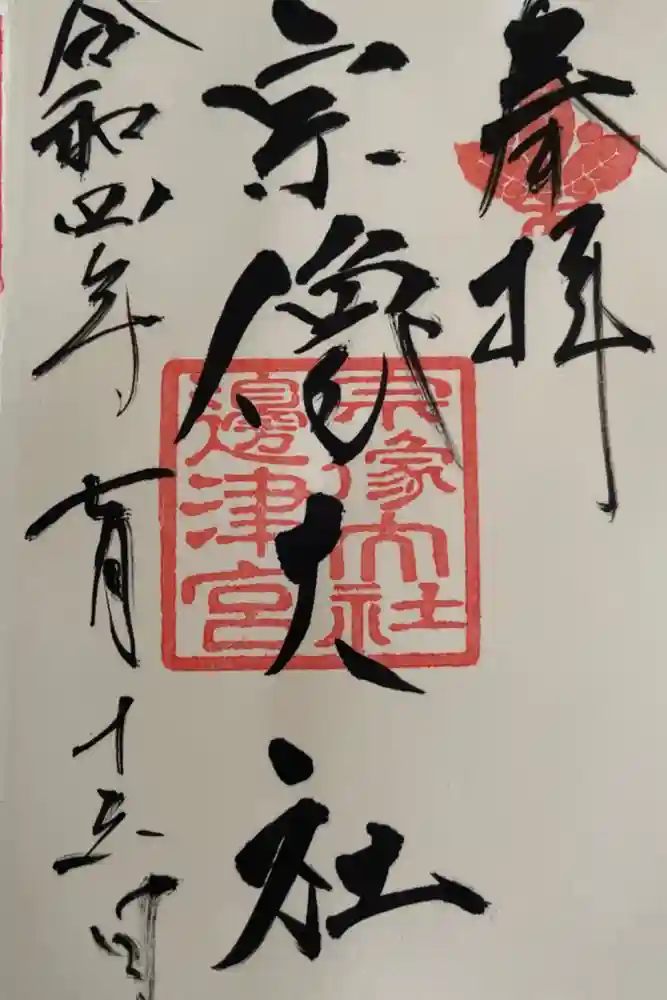 奉拝
宗像大社
宗像大社
邊津宮
令和四年 七月 十五日